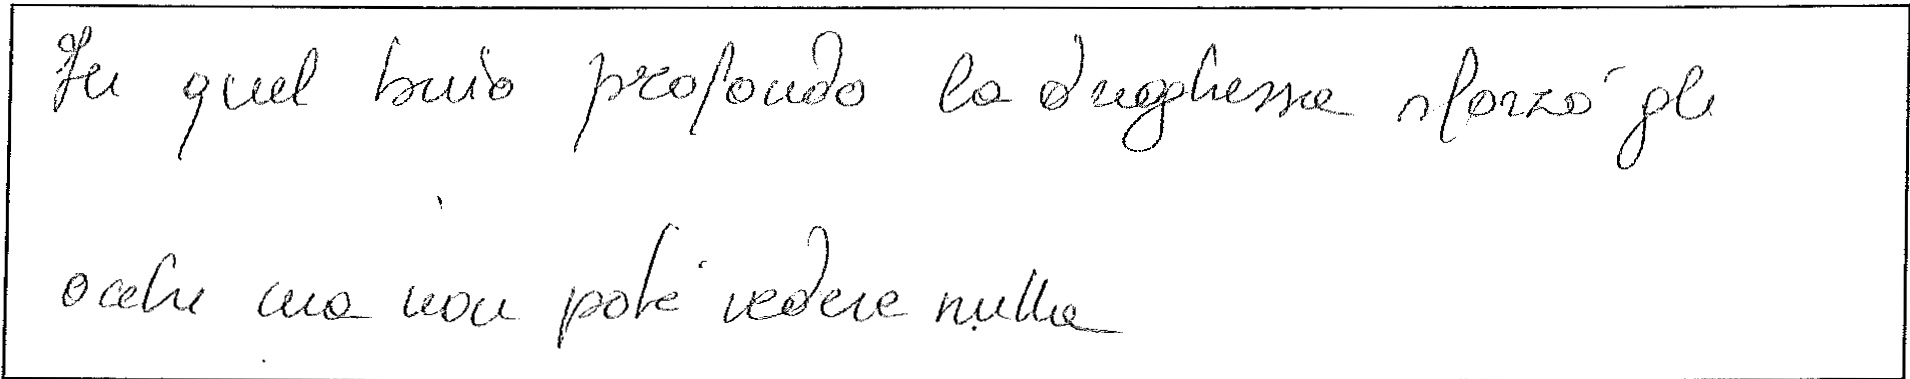 In quel buio profondo la dughessa sforzò gli
occhi ma non poté vedere nulla